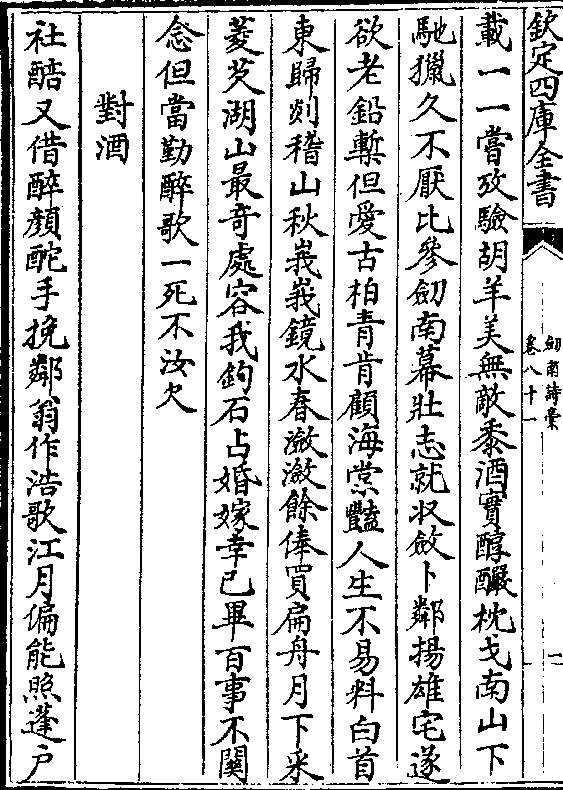 欽定四庫全書
劒南詩槀
卷八十一
一
載一一嘗攷驗胡羊美無敵黍酒實醇釅枕戈南山下
馳獵久不厭比參劒南幕壯志就收斂卜鄰揚雄宅遂
欲老鉛槧但愛古柏青肯顧海棠豔人生不易料白首
東歸剡稽山秋峩峩鏡水春瀲瀲餘俸買扁舟月下采
菱芡湖山最奇處容我釣石占婚嫁幸已畢百事不關
念但當勤醉歌一死不汝欠
對酒
社醅又借醉顔酡手挽鄰翁作浩歌江月偏能照蓬户